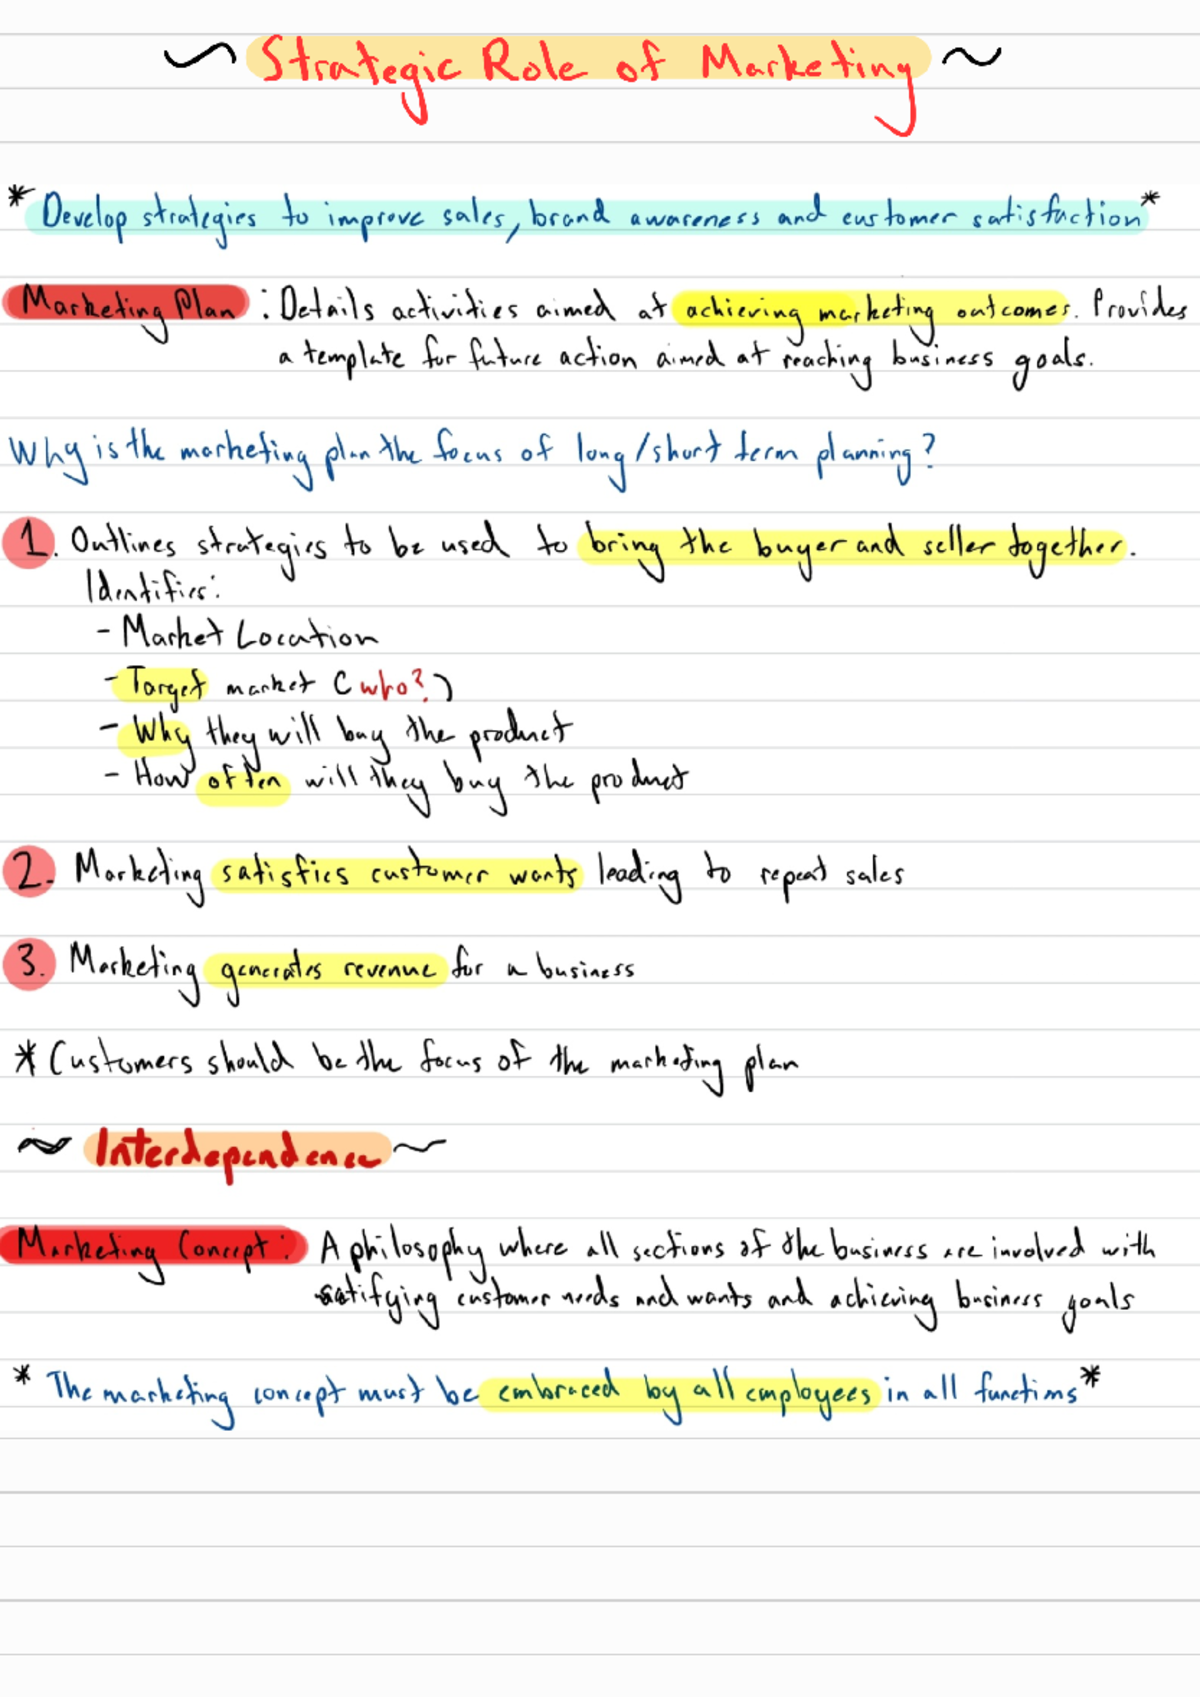 ~ Strategic Role of Marketing ~
* Develop strategies to improve sales, brand awareness and customer satisfaction *
Marketing Plan : Details activities aimed at achieving marketing outcomes. Provides
a template for future action aimed at reaching business goals.
Why is the marketing plan the focus of long/short term planning?
1. Outlines strategies to be used to bring the buyer and seller together.
Identifies:
- Market Location
- Target market (who?)
- Why they will buy the product
- How often will they buy the product
2. Marketing satisfies customer wants leading to repeat sales
3. Marketing generates revenue for a business
* Customers should be the focus of the marketing plan
~ Interdependence ~
Marketing Concept: A philosophy where all sections of the business are involved with
satifying customer needs and wants and achieving business goals
* The marketing concept must be embraced by all employees in all functions *